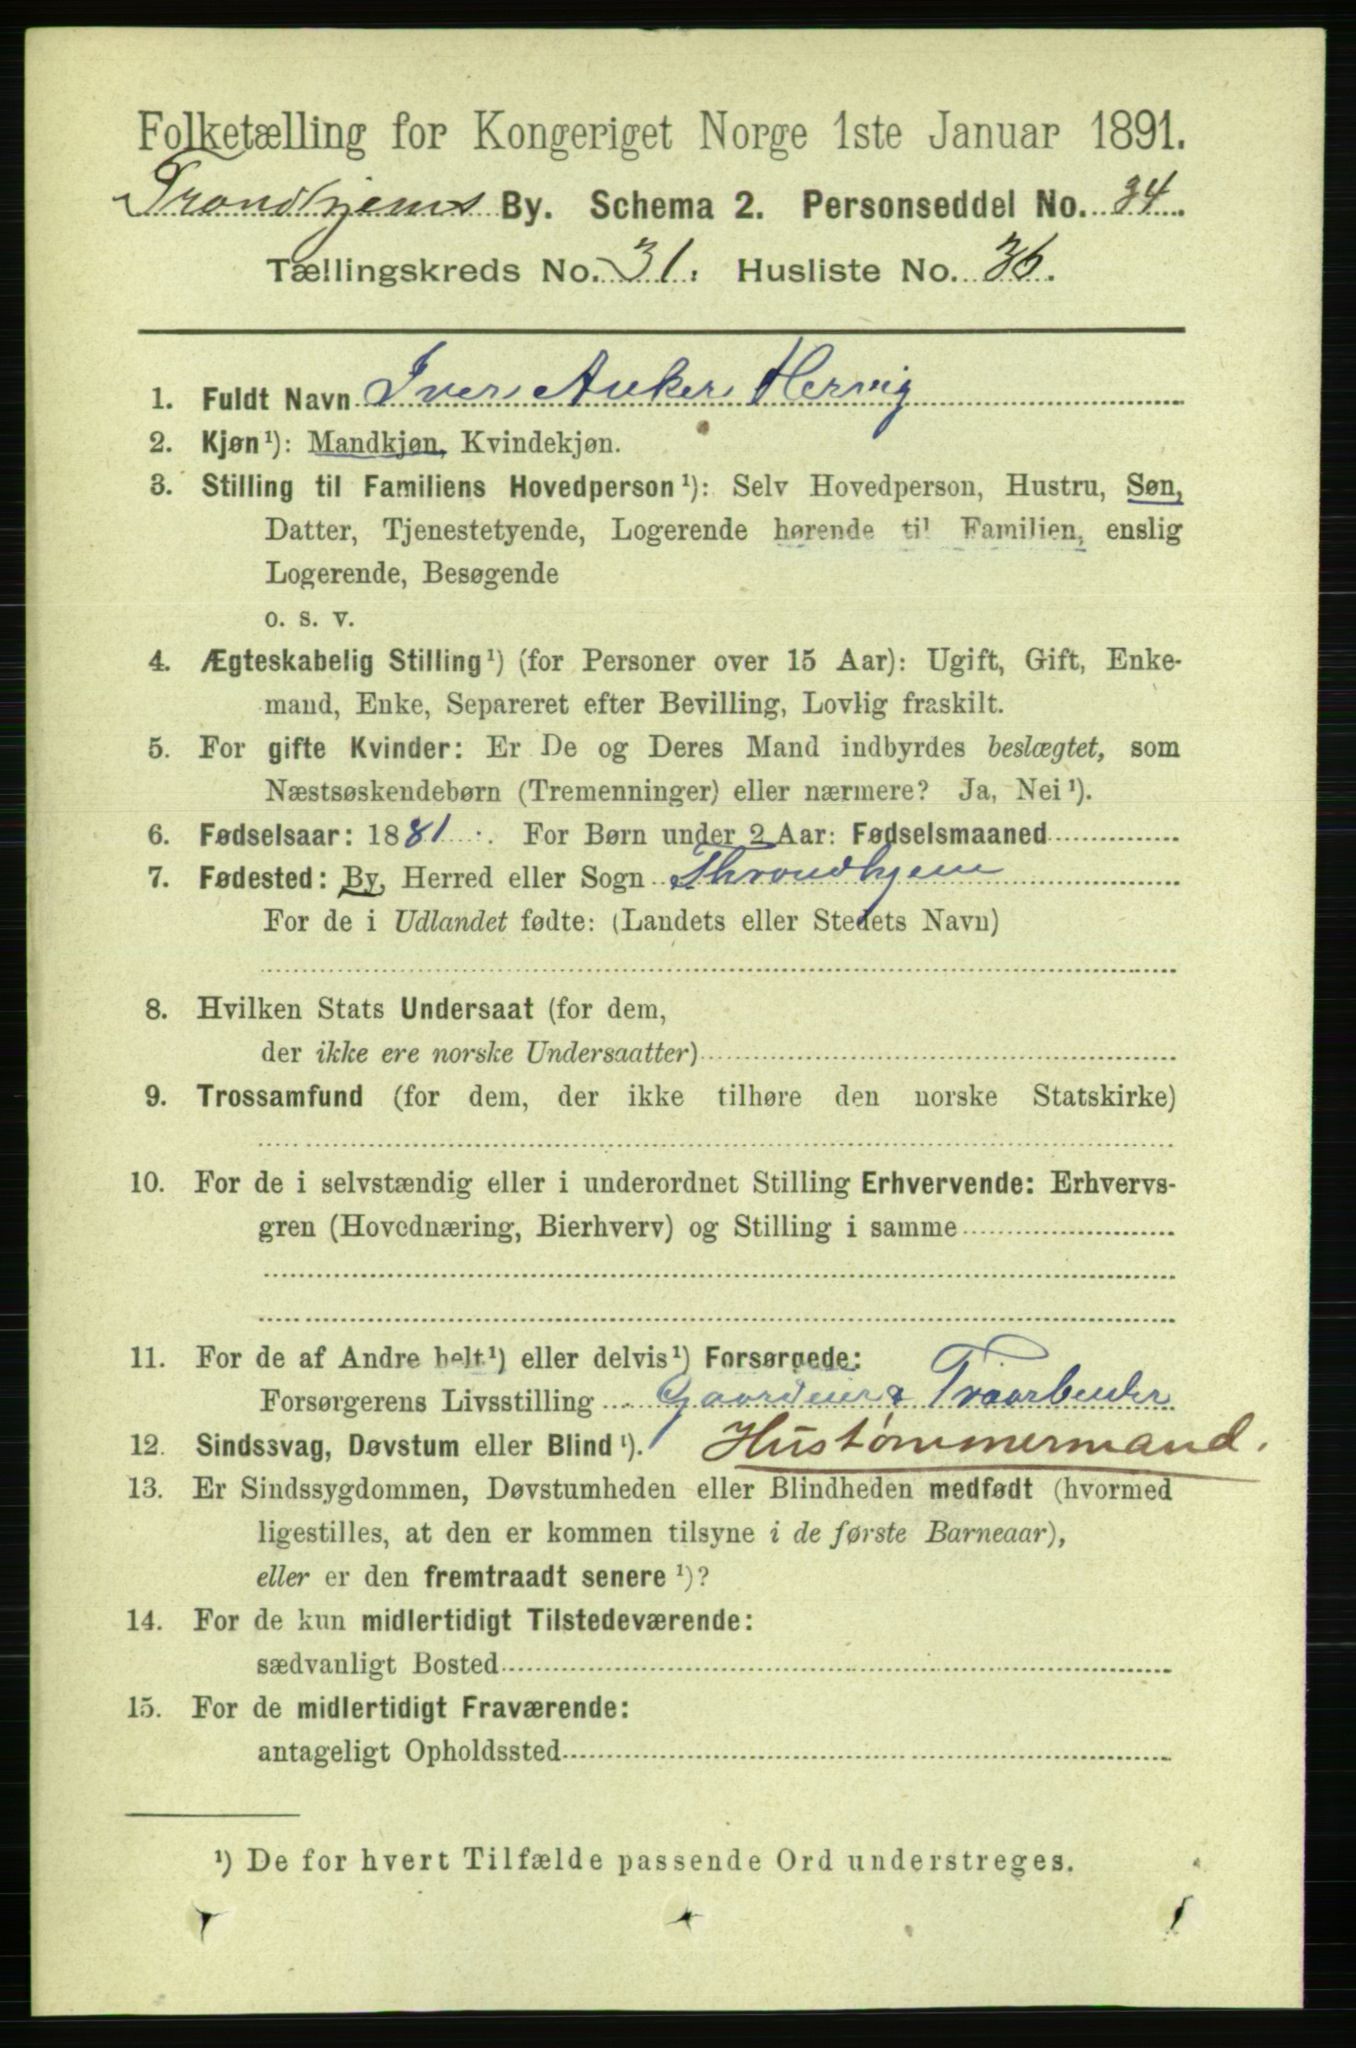 Folketælling for Kongeriget Norge 1ste Januar 1891.
Trondhjems By. Schema 2. Personseddel No. 34
Tællingskreds No. 31. Husliste No. 36.
1. Fuldt Navn Iver Anker Hervig
2. Kjøn¹): Mandkjøn, Kvindekjøn.
3. Stilling til Familiens Hovedperson¹): Selv Hovedperson, Hustru, Søn,
Datter, Tjenestetyende, Logerende hørende til Familien, enslig
Logerende, Besøgende
o. s. v.
4. Ægteskabelig Stilling¹) (for Personer over 15 Aar): Ugift, Gift, Enke-
mand, Enke, Separeret efter Bevilling, Lovlig fraskilt.
5. For gifte Kvinder: Er De og Deres Mand indbyrdes beslægtet, som
Næstsøskendebørn (Tremenninger) eller nærmere? Ja, Nei¹).
6. Fødselsaar: 1881. For Børn under 2 Aar: Fødselsmaaned
7. Fødested: By, Herred eller Sogn Throndhjem
For de i Udlandet fødte: (Landets eller Stedets Navn)
8. Hvilken Stats Undersaat (for dem,
der ikke ere norske Undersaatter)
9. Trossamfund (for dem, der ikke tilhøre den norske Statskirke)
10. For de i selvstændig eller i underordnet Stilling Erhvervende: Erhvervs-
gren (Hovednæring, Bierhverv) og Stilling i samme
11. For de af Andre helt¹) eller delvis¹) Forsørgede:
Forsørgerens Livsstilling Gaardeier &
12. Sindssvag, Døvstum eller Blind¹). Hustømmermand.
13. Er Sindssygdommen, Døvstumheden eller Blindheden medfødt (hvormed
ligestilles, at den er kommen tilsyne i de første Barneaar),
eller er den fremtraadt senere¹)?
14. For de kun midlertidigt Tilstedeværende:
sædvanligt Bosted
15. For de midlertidigt Fraværende:
antageligt Opholdssted
¹) De for hvert Tilfælde passende Ord understreges.